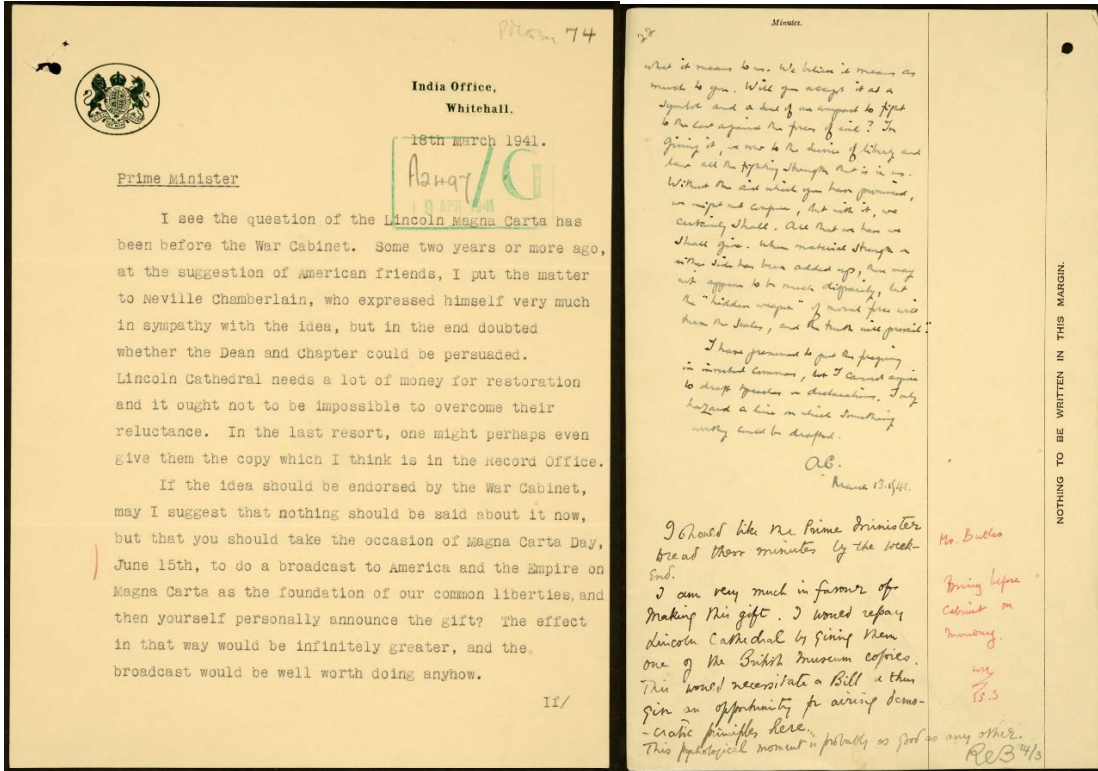 Pilcom 74
India Office,
Whitehall.
18th March 1941.
A2497/G
19 APR 1941
Prime Minister
I see the question of the Lincoln Magna Carta has
been before the War Cabinet. Some two years or more ago,
at the suggestion of American friends, I put the matter
to Neville Chamberlain, who expressed himself very much
in sympathy with the idea, but in the end doubted
whether the Dean and Chapter could be persuaded.
Lincoln Cathedral needs a lot of money for restoration
and it ought not to be impossible to overcome their
reluctance. In the last resort, one might perhaps even
give them the copy which I think is in the Record Office.
If the idea should be endorsed by the War Cabinet,
may I suggest that nothing should be said about it now,
but that you should take the occasion of Magna Carta Day,
June 15th, to do a broadcast to America and the Empire on
Magna Carta as the foundation of our common liberties, and
then yourself personally announce the gift? The effect
in that way would be infinitely greater, and the
broadcast would be well worth doing anyhow.
If/
Minutes.
what it means to us. We believe it means as
much to you. Will you accept it as a
symbol and a seal of our compact to fight
to the last against the forces of evil? In
giving it, we vow to the service of liberty and
law all the fighting strength that is in us.
Without the aid which you have promised,
we might not conquer, but with it, we
certainly shall. All that we have we
shall give. When material strength on
either side has been added up, there may
not appear to be much disparity, but
the "hidden weapon" of moral force will
turn the scales, and the truth will prevail".
I have presumed to put the foregoing
in inverted commas, but I cannot aspire
to draft speeches or declarations. I only
hazard a line on which something
worthy could be drafted.
AC.
March 13. 1941.
I should like the Prime Minister
to read these minutes by the week-
end.
I am very much in favour of
making this gift. I would repay
Lincoln Cathedral by giving them
one of the British Museum copies.
This would necessitate a Bill & thus
give an opportunity for airing demo-
-cratic principles here.
This psychological moment is probably as good as any other.
RAB 14/3
Mr. Butler
Bring before
Cabinet on
Monday.
15.3
NOTHING TO BE WRITTEN IN THIS MARGIN.